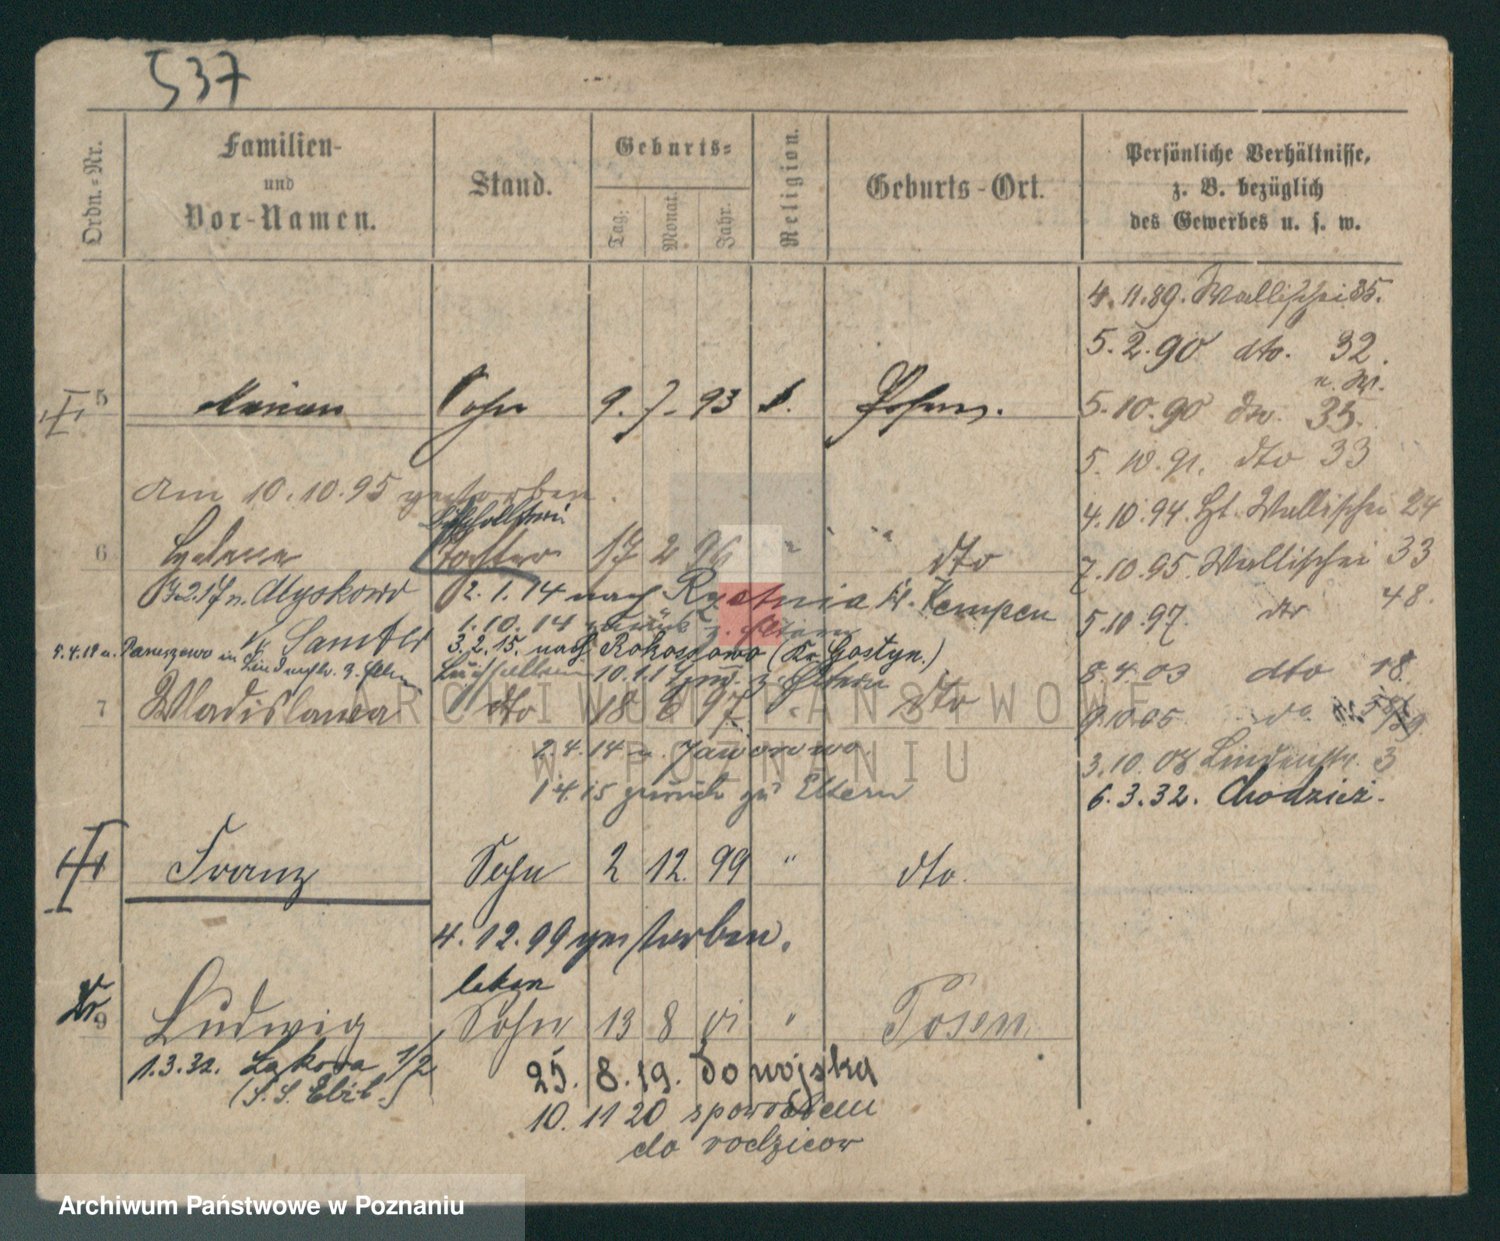 537
Ordn.-Nr.
Familien-
und
Vor-Namen.
Stand.
Geburts-
Tag.
Monat.
Jahr.
Religion.
Geburts-Ort.
Persönliche Verhältnisse,
z. B. bezüglich
des Gewerbes u. s. w.
4.11.89. Wallischei 35.
5.2.90 dto. 32.
5 Marian Sohn 9. 7. 93 Posen.
5.10.90 35.
5. 10. 91. dto 33
am 10.10.95 gestorben.
4.10.94. Wallischei 24
6 Helene Tochter 17 2 96 " " dto
7.10.95. Wallischei 33
2.1.14 nach Kr. Kempen
5.10.97. dto 48.
1.10.14 zurück z. Eltern
Samter 3.2.15. nach Rokossowo (Kr. Gostyn.)
8.4.03 dto 18.
7 Wladislawa dto 18 6 97 " dto
9.10.05
2.4.14 n. Jaworowo.
3.10.08 Lindenstr. 3
1.4.15 zurück zu Eltern
6.3.32. Chodzież.
Franz Sohn 2 12. 99 " dto.
4.12.99 gestorben.
9 Ludwig Sohn 13 8 01 " Posen
1.3.32. Łąkowa 1/2
(S.S. Elżb.)
25. 8. 19. do wojska
10. 11 20 spowrotem
do rodziców
ARCHIWUM PAŃSTWOWE
W POZNANIU
Archiwum Państwowe w Poznaniu